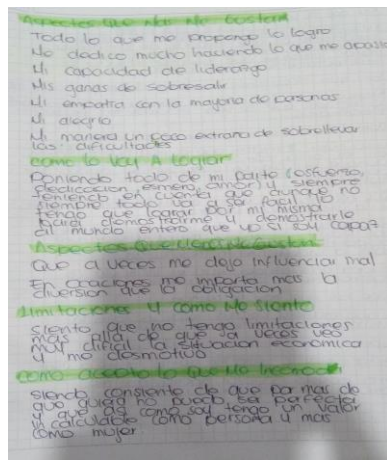 Aspectos que Mas Me Gustan
Todo lo que me propongo lo logro
Me dedico mucho haciendo lo que me apasio
Mi capacidad de liderazgo
Mis ganas de sobresalir
Mi empatia con la mayoria de personas
Mi alegria
Mi manera un poco extraña de sobrellevar
las dificultades
como lo voy A Lograr
Poniendo todo de mi parte (esfuerzo,
dedicacion, esmero, amor) y siempre
teniendo en cuenta que aunque no
siempre todo va a ser facil lo
tengo que lograr por mi misma
para demostrarme y demostrarle
al mundo entero que yo si soy capaz
Aspectos que
Que a veces me dejo influenciar mal
En ocaciones me importa mas la
diversion que la obligacion
Limitaciones y como Me Siento
siento que no tengo limitaciones
mas alla de que a veces veo
muy dificil la situacion economica
y me desmotivo
como acepto lo que Me
siendo consiente de que por mas de
que quiera no puedo ser perfecta
y que asi como soy tengo un valor
incalculable como persona y mas
como mujer.